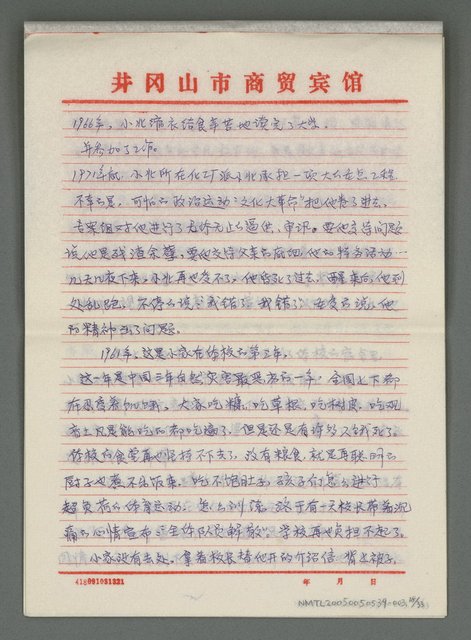 井冈山市商贸宾馆
1966年，小北缩衣结食辛苦地读完了大学，
并参加了工作。
1971年底，小北所在化工厂派小北承担一项大工程
不幸的是，可怕的政治运动"文化大革命"把他卷了进去，
专案组对他进行了无休无止的逼供、审讯。要他交待问题
说他是残渣余孽，要他交待父亲的底细，他的特务活动…
几天几夜下来，小北再也受不了，他昏死了过去，醒来后，他到
处乱跑，不停的说：我错 我错了。医生说，他
的精神出了问题。
1961年，这是小家在体校的第三年。
这一年是中国三年自然灾害最严重的一年，全国上下都
在忍受着饥饿。大家吃糠，吃草根，吃树皮，吃观
音土凡是能吃的都吃遍了。但是还是有许多人饿死了。
体校的食堂再也坚持不下去了，没有粮食，就是再聪明的
厨子也煮不出饭来。吃不饱肚子，孩子们怎么进行
超负荷的体育运动，怎么训练。终于有一天校长带着沉
痛的心情宣布"全体队员解散"。学校再也负担不起了。
小家没有去处。拿着校长替他开的介绍信，背上被子，
418091031321 年 月 日
NMTL20050050534-003